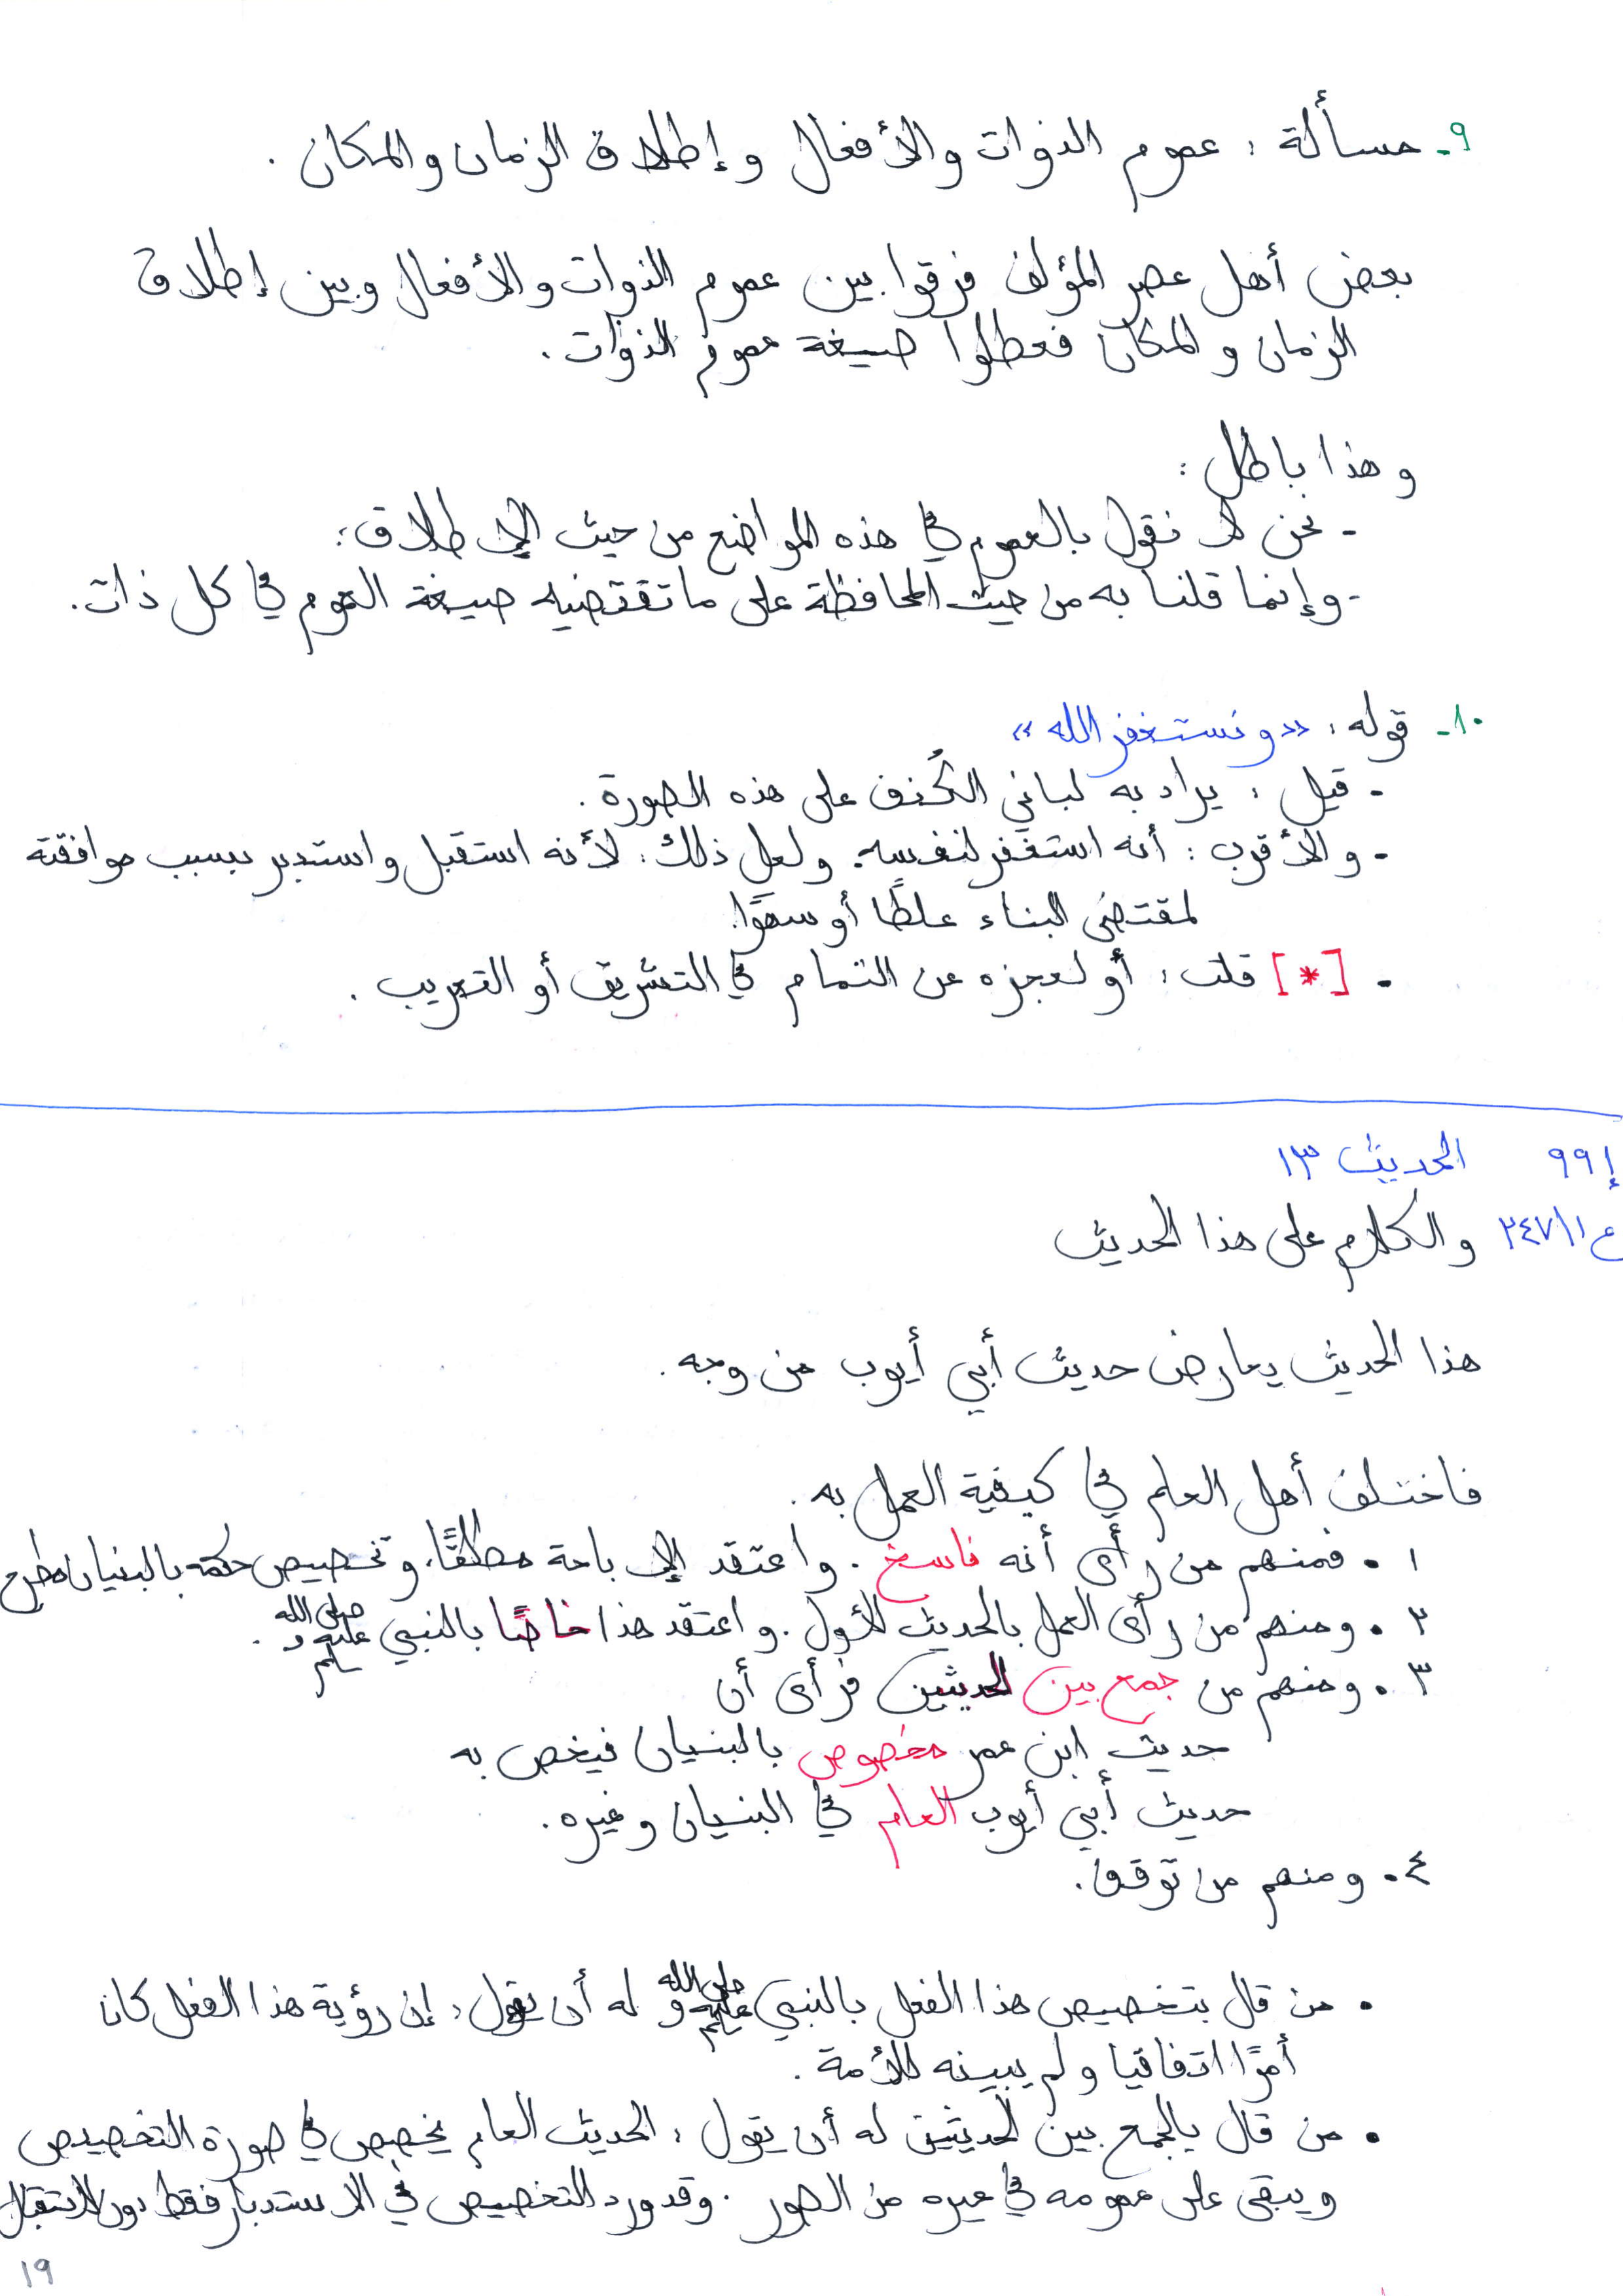 ٩- مسألة: عموم الذوات والأفعال وإطلاق الزمان والمكان.
بعض أهل عصر المؤلف فرقوا بين عموم الذوات والأفعال وبين إطلاق
الزمان والمكان فعطلوا صيغة عموم الذوات.
وهذا باطل:
- نحن لا نقول بالعموم في هذه المواضع من حيث الإطلاق:
- وإنما قلنا به من حيث المحافظة على ما تقتضيه صيغة العموم في كل ذات.
١٠- قوله: «ونستغفر الله»
- قيل: يراد به لباني الكُنف على هذه الصورة.
- والأقرب: أنه استغفر لنفسه. ولعل ذلك: لأنه استقبل واستدبر بسبب موافقته
لمقتضى البناء غلطًا أو سهوًا.
- [*] قلت: أو لعجزه عن التمام في التشريق أو التغريب.
إ٩٩ الحديث ١٣
ع٢٤٧/١ والكلام على هذا الحديث
هذا الحديث يعارض حديث أبي أيوب من وجه.
فاختلف أهل العلم في كيفية العمل به.
١. فمنهم من رأى أنه ناسخ. واعتقد الإباحة مطلقًا، وتخصيص حكمه بالبنيان مطرح
٢. ومنهم من رأى العمل بالحديث الأول. واعتقد هذا خاصًا بالنبي صلى الله عليه وسلم.
٣. ومنهم من جمع بين الحديثين فرأى أن
حديث ابن عمر مخصوص بالبنيان فيخص به
حديث أبي أيوب العام في البنيان وغيره.
٤. ومنهم من توقف.
• من قال بتخصيص هذا الفعل بالنبي صلى الله عليه وسلم له أن يقول: إن رؤية هذا الفعل كان
أمرًا اتفاقيا ولم يبينه للأمة.
• من قال بالجمع بين الحديثين له أن يقول: الحديث العام يخصص في صورة التخصيص
ويبقى على عمومه في غيره من الصور. وقد ورد التخصيص في الاستدبار فقط دون الاستقبال
١٩